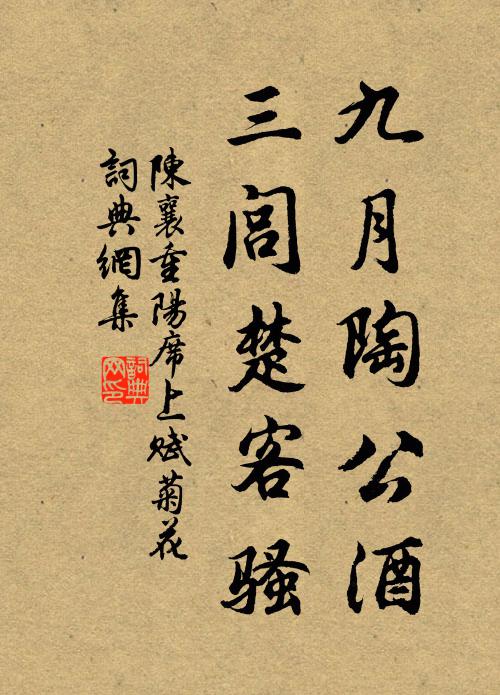 九月陶公酒
三闾楚客骚
陳襄重陽席上賦菊花
詞典網集
詞典
网印